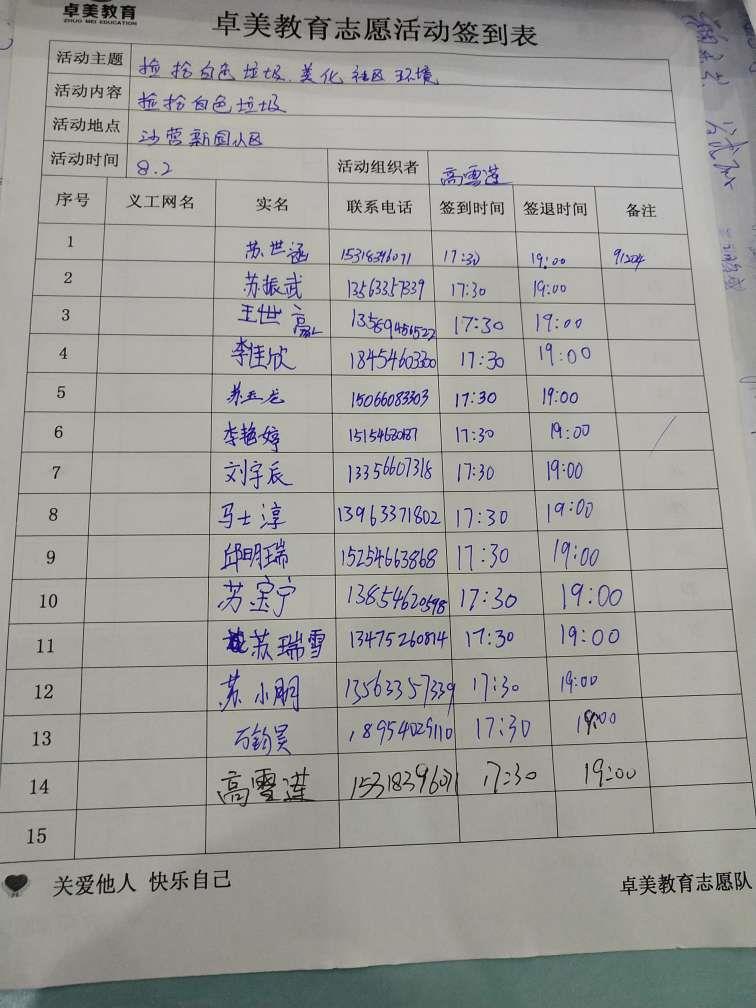 卓美教育
ZHUO MEI EDUCATION
卓美教育志愿活动签到表
活动主题 捡拾白色垃圾、美化社区环境
活动内容 捡拾白色垃圾
活动地点 沙营新园小区
活动时间 8.2 活动组织者 高雪莲
序号 义工网名 实名 联系电话 签到时间 签退时间 备注
1 苏世涵 15318396071 17:30 19:00
2 苏振武 13563357339 17:30 19:00
3 王世 17:30 19:00
4 李佳欣 18454603300 17:30 19:00
5 苏玉龙 15066083303 17:30 19:00
6 李艳婷 17:30 19:00
7 刘宇辰 13356607318 17:30 19:00
8 马士淳 13963371802 17:30 19:00
9 邱明瑞 15254663868 17:30 19:00
10 苏宝宁 13854620598 17:30 19:00
11 苏瑞雪 13475260814 17:30 19:00
12 苏小朋 13563357339 17:30 19:00
13 万钧昊 18954029110 17:30 19:00
14 高雪莲 15318396071 17:30 19:00
15
关爱他人 快乐自己 卓美教育志愿队